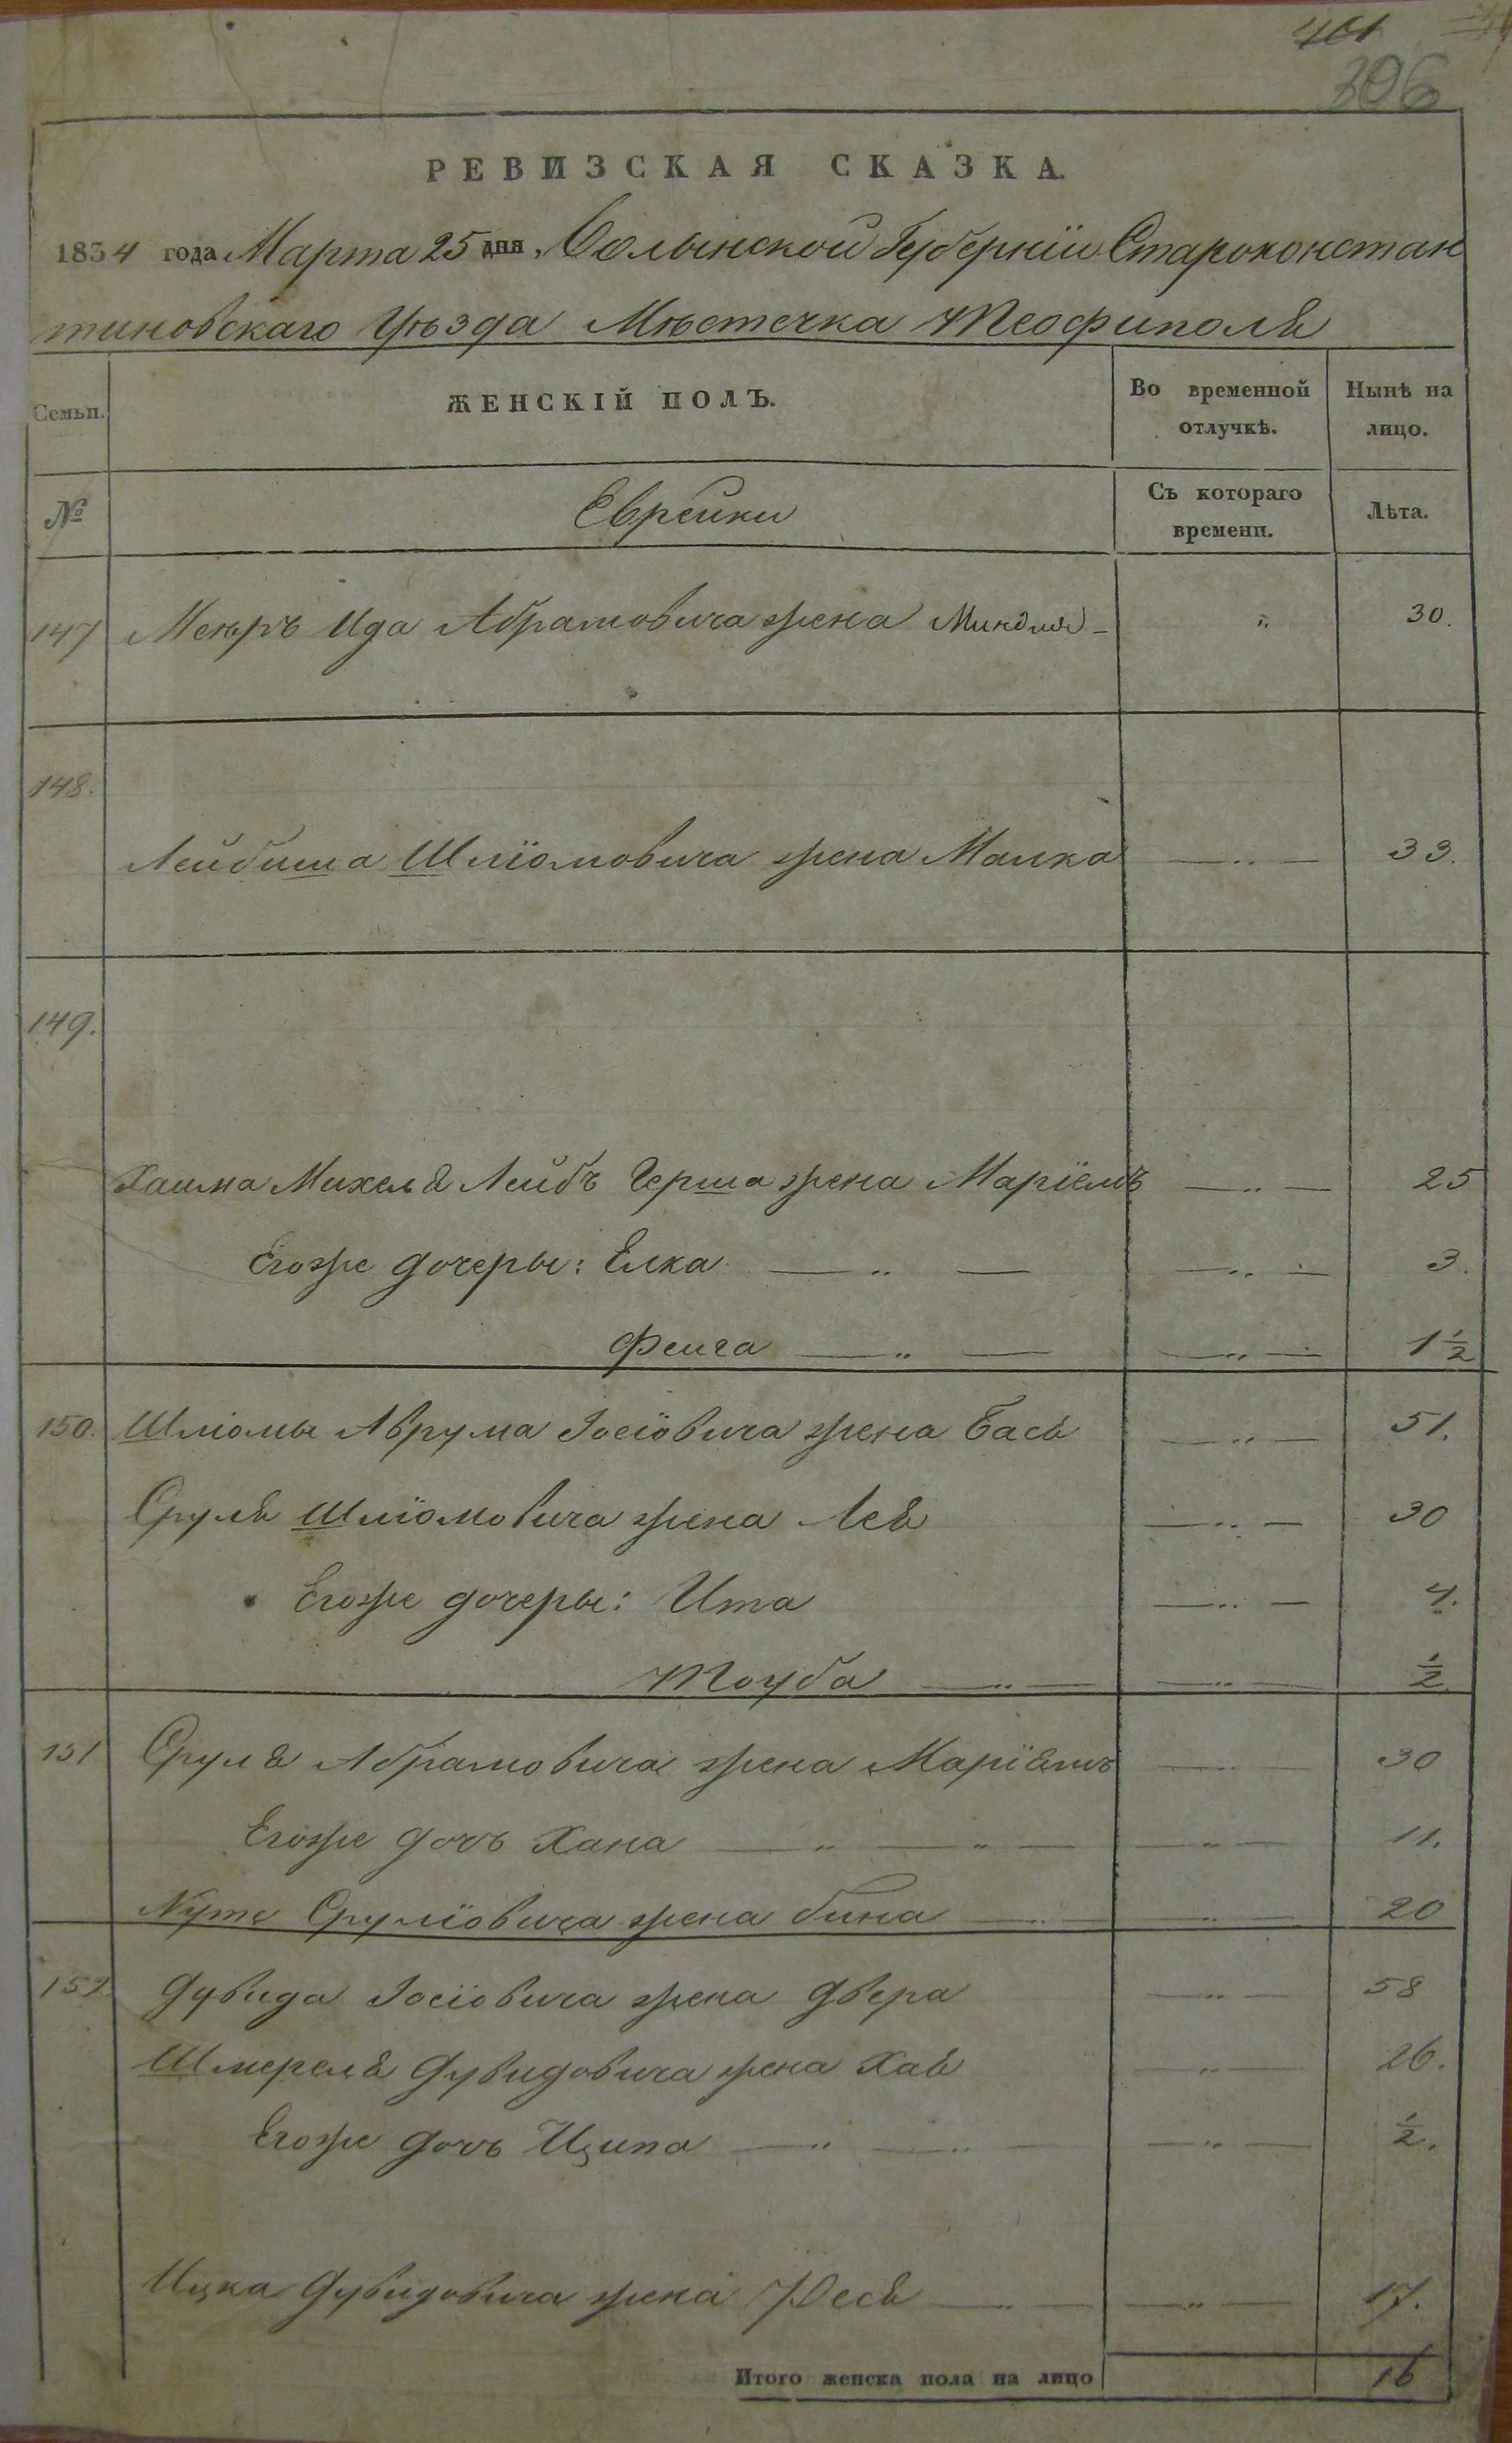 401
306
РЕВИЗСКАЯ СКАЗКА.
1834 года Марта 25 дня, Волынской Губернїи Староконстан
тиновскаго Уѣзда Мѣстечка Теофиполя
Семьи. ЖЕНСКІЙ ПОЛЪ. Во временной отлучкѣ. Нынѣ на лицо.
№ Еврейки Съ котораго времени. Лѣта.
147 Меѣръ Ида Абрамовича жена Миндля - " 30.
148.
Лейбиша Шлїомовича жена Малка — " — 33.
149.
Хаима Михеля Лейбъ Герша жена Марїемъ — " — 25
Егоже дочеры: Елка — " — — " — 3.
Фейга — " — — " — 1½
150. Шліомы Аврума Іосїовича жена Бася — " — 51.
Сруля Шлїомовича жена Лея — " — 30
Егоже дочеры: Ита — " — 4.
Тоуба — " — — " — ½
151 Сруля Абрамовича жена Марїямъ — " — 30
Егоже дочь Хана — " — " — — " — 11.
Нуте Срулїовича жена бина — " — — " — 20
152 Дувида Іосїовича жена Двера — " — 58
Шмереля Дувидовича жена Хая — " — 26.
Егоже дочь Ципа — " — " — — " — ½.
Ицка Дувидовича жена Рося — " — — " — 17.
Итого женска пола на лицо 16